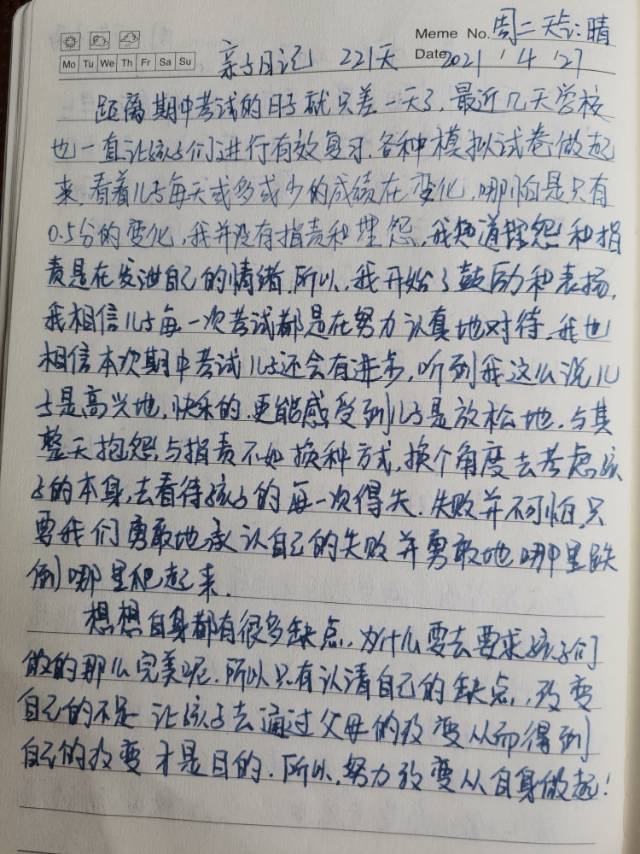 Meme No. 周二 天气:晴
Mo Tu We Th Fr Sa Su
亲子日记 221天 Date 2021 / 4 / 27
距离期中考试的日子就只差一天了,最近几天学校
也一直让孩子们进行有效复习,各种模拟试卷做起
来,看着儿子每天或多或少的成绩在变化,哪怕是只有
0.5分的变化,我并没有指责和埋怨,我知道埋怨和指
责是在发泄自己的情绪,所以,我开始了鼓励和表扬,
我相信儿子每一次考试都是在努力认真地对待,我也
相信本次期中考试儿子还会有进步,听到我这么说儿
子是高兴地,快乐的,更能感受到儿子是放松地,与其
整天抱怨与指责不如换种方式,换个角度去考虑孩
子的本身,去看待孩子的每一次得失,失败并不可怕,只
要我们勇敢地承认自己的失败并勇敢地哪里跌
倒哪里爬起来.
想想自身都有很多缺点,为什么要去要求孩子们
做的那么完美呢,所以只有认清自己的缺点,改变
自己的不足 让孩子去通过父母的改变从而得到
自己的改变 才是目的,所以,努力改变从自身做起!